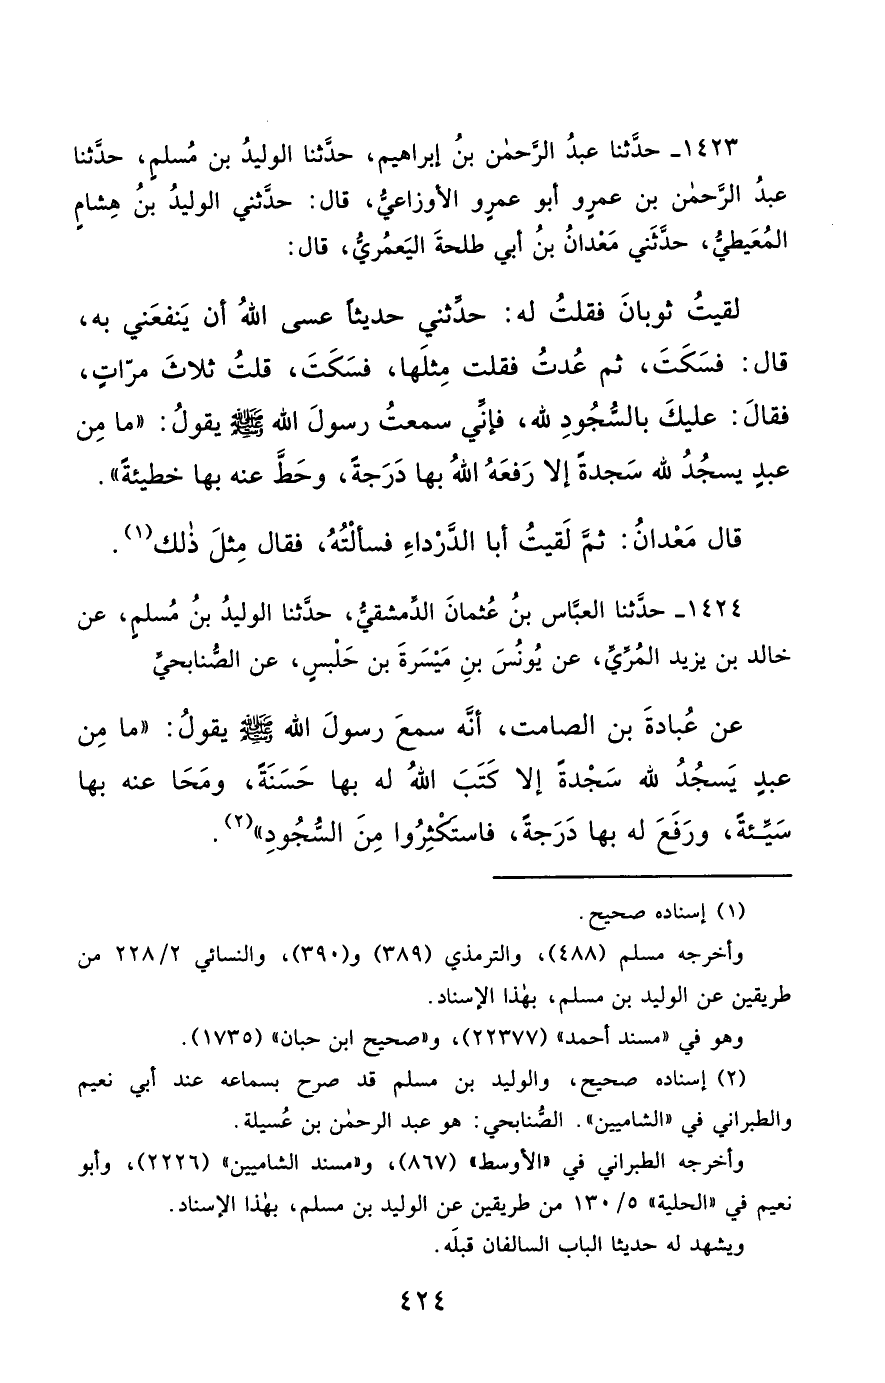 ١٤٢٣ـ حدَّثنا عبدُ الرَّحمٰن بنُ إبراهيم، حدَّثنا الوليدُ بن مُسلمٍ، حدَّثنا
عبدُ الرَّحمٰن بن عمرٍو أبو عمرٍو الأوزاعيُّ، قال: حدَّثني الوليدُ بنُ هِشامٍ
المُعَيطيُّ، حدَّثَني مَعْدانُ بنُ أبي طلحةَ اليَعمُريُّ، قال:
لقيتُ ثوبانَ فقلتُ له: حدِّثني حديثاً عسى اللهُ أن يَنفعَني به،
قال: فسَكَتَ، ثم عُدتُ فقلت مِثلَها، فسَكَتَ، قلتُ ثلاثَ مرّاتٍ،
فقالَ: عليكَ بالسُّجُودِ لله، فإنِّي سمعتُ رسولَ الله ﷺ يقولُ: «ما مِن
عبدٍ يسجُدُ لله سَجدةً إلا رَفعَهُ اللهُ بها دَرَجةً، وحَطَّ عنه بها خطيئةً».
قال مَعْدانُ: ثمَّ لَقيتُ أبا الدَّرْداءِ فسألْتُهُ، فقال مِثلَ ذٰلك(١).
١٤٢٤ـ حدَّثنا العبَّاس بنُ عُثمانَ الدِّمشقيُّ، حدَّثنا الوليدُ بنُ مُسلمٍ، عن
خالد بن يزيد المُرِّيِّ، عن يُونُسَ بنِ مَيْسَرةَ بن حَلْبسٍ، عن الصُّنابحيِّ
عن عُبادةَ بن الصامت، أنَّه سمعَ رسولَ الله ﷺ يقولُ: «ما مِن
عبدٍ يَسجُدُ لله سَجْدةً إلا كَتَبَ اللهُ له بها حَسَنَةً، ومَحَا عنه بها
سَيِّئةً، ورَفَعَ له بها دَرَجةً، فاستَكْثِرُوا مِنَ السُّجُودِ»(٢).
(١) إسناده صحيح.
وأخرجه مسلم (٤٨٨)، والترمذي (٣٨٩) و(٣٩٠)، والنسائي ٢٢٨/٢ من
طريقين عن الوليد بن مسلم، بهٰذا الإسناد.
وهو في «مسند أحمد» (٢٢٣٧٧)، و«صحيح ابن حبان» (١٧٣٥).
(٢) إسناده صحيح، والوليد بن مسلم قد صرح بسماعه عند أبي نعيم
والطبراني في «الشاميين». الصُّنابحي: هو عبد الرحمٰن بن عُسيلة.
وأخرجه الطبراني في «الأوسط» (٨٦٧)، و«مسند الشاميين» (٢٢٢٦)، وأبو
نعيم في «الحلية» ١٣٠/٥ من طريقين عن الوليد بن مسلم، بهٰذا الإسناد.
ويشهد له حديثا الباب السالفان قبلَه.
٤٢٤